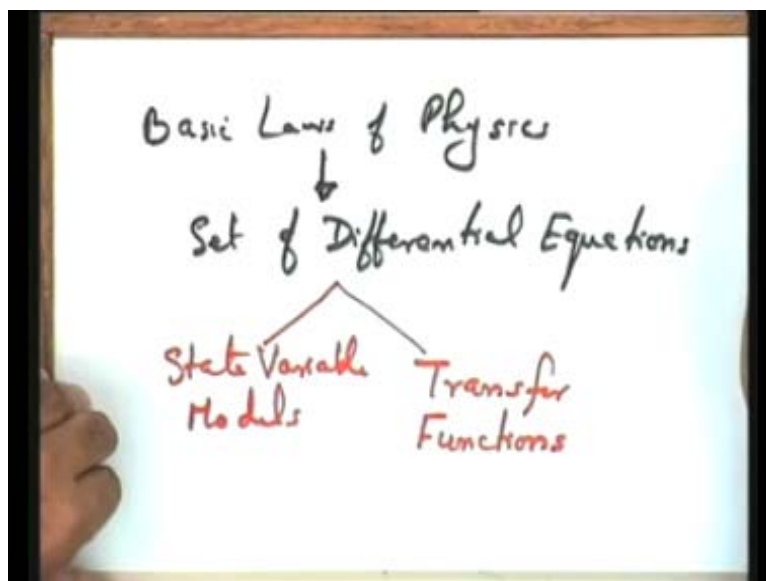 Basic Laws of Physics
Set of Differential Equations
State Variable
Models
Transfer
Functions